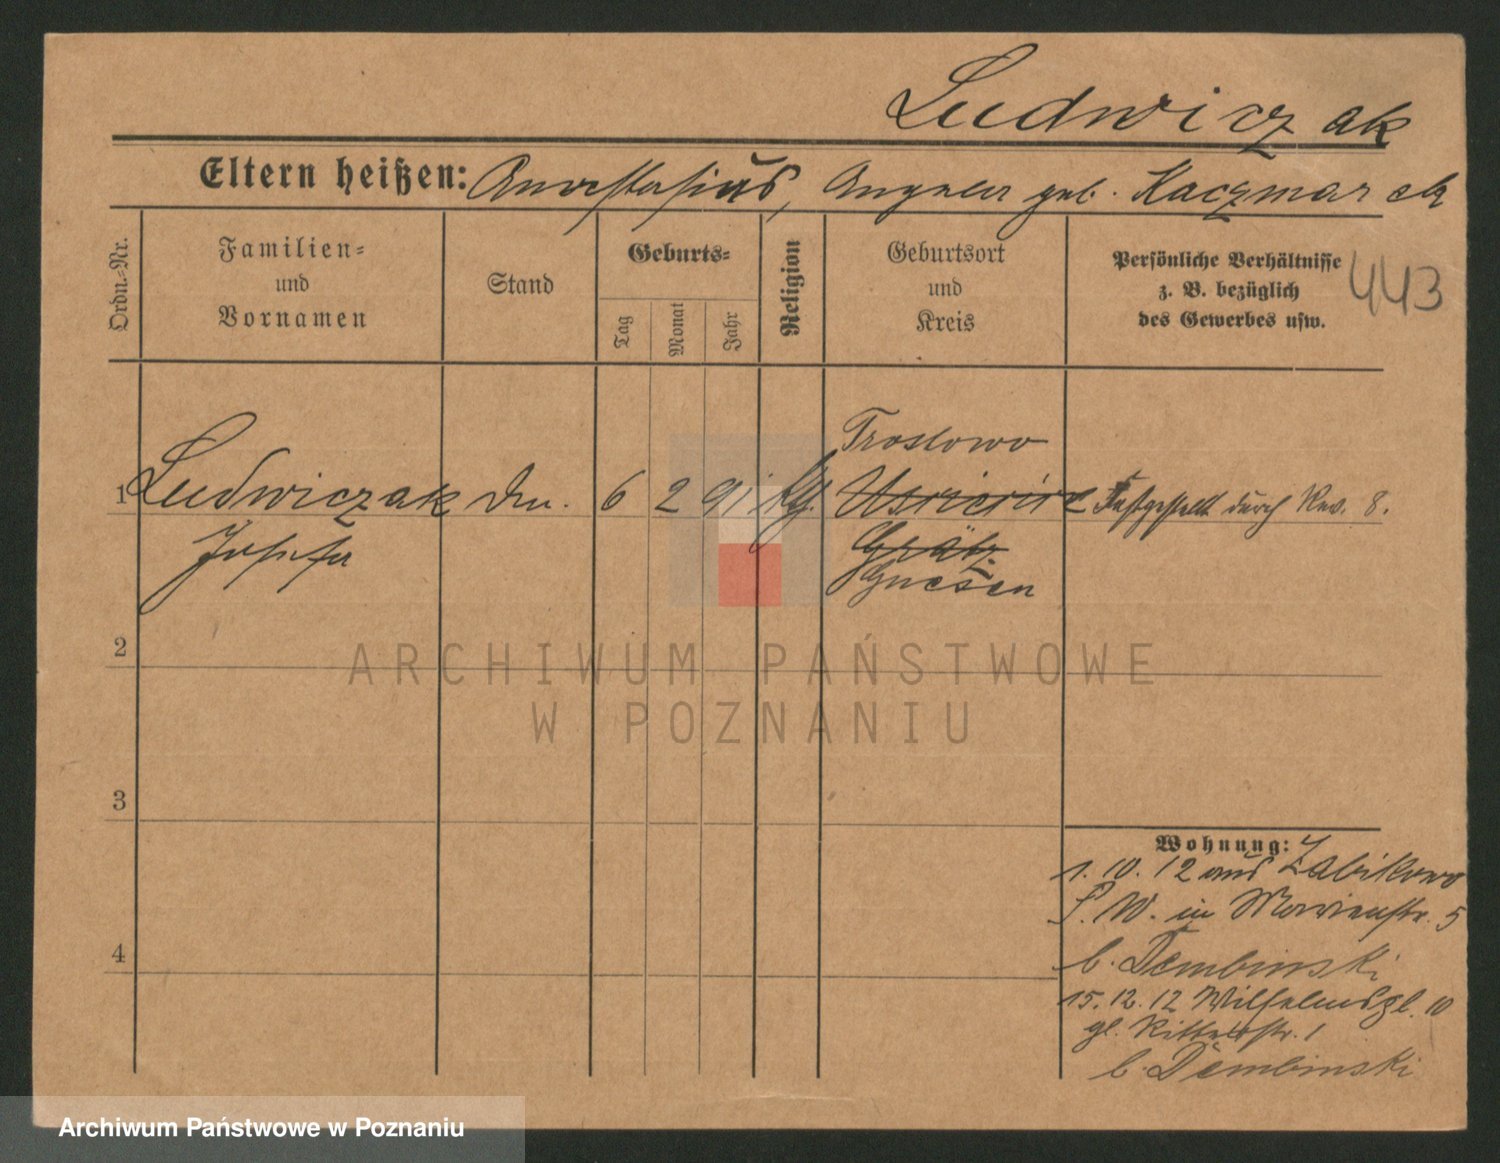 Ludwiczak
Eltern heißen: Anastasius, Angela geb. Kaczmarek
Ordn.-Nr.
Familien-
und
Vornamen
Stand
Geburts-
Tag
Monat
Jahr
Religion
Geburtsort
und
Kreis
Persönliche Verhältnisse
z. B. bezüglich
des Gewerbes usw.
443
1 Ludwiczak
Josefa
6 2 91
Gnesen
Festgestellt durch Rev. 8.
2
3
4
Wohnung:
1. 10. 12 aus Zabikowo
P. W. in Marienstr. 5
b. Dembinski
15. 12. 12 Wilhelmspl. 10
gl. Ritterstr. 1
b. Dembinski
ARCHIWUM PAŃSTWOWE
W POZNANIU
Archiwum Państwowe w Poznaniu